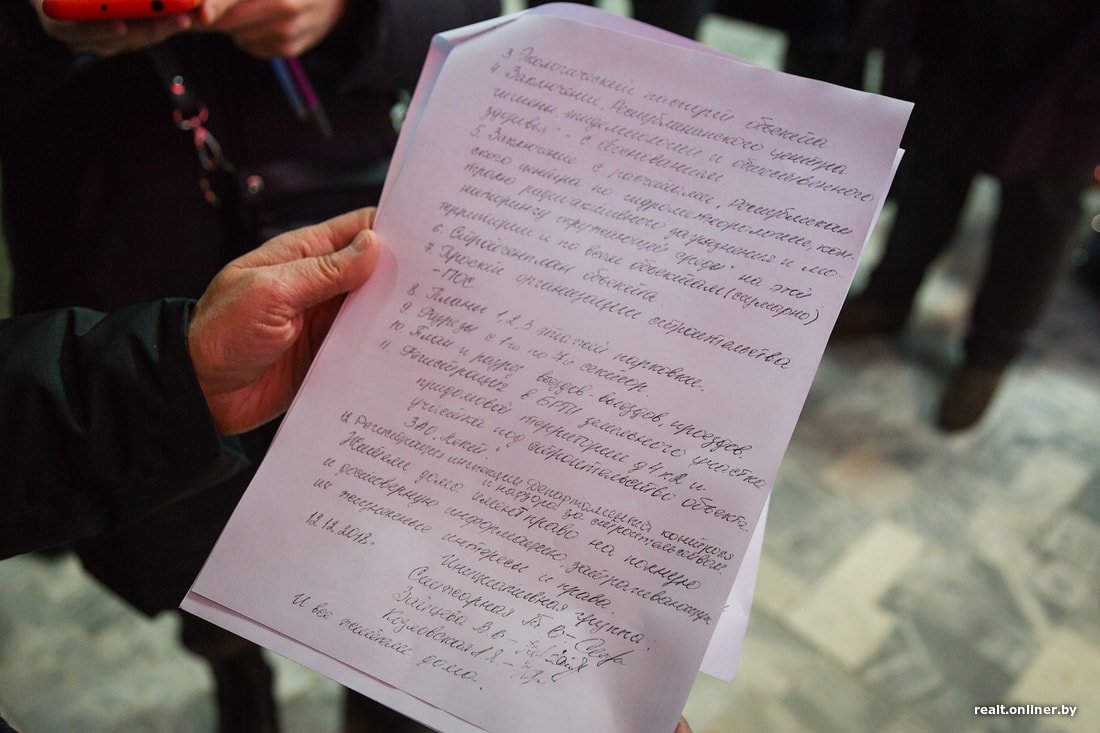 3. Экологический паспорт объекта
4. Заключение „Республиканского центра
гигиены, эпидемиологии и общественного
здоровья" - с обоснованием.
5. Заключение с расчётами „Республикан
ского центра по гидрометеорологии, кон-
тролю радиоактивного загрязнения и мо-
ниторингу окружающей среды" на этой
территории и по всем объектам (суммарно)
6. Стройгенплан объекта.
7. Проект организации строительства
- ПОС
8. Планы 1,2,3 этажей парковки.
9. Разрезы с 1го по 4й сектор.
10. План и разрез въездов-выездов, проездов.
11. Регистрация в БРТИ земельного участка
придомовой территории д 4 к 2 и
участка под строительство объекта
ЗАО
12. Регистрация инспекции Департамента контроля
и надзора за строительством.
Жители дома имеют право на полную
и достоверную информацию, затрагивающую
их жизненные интересы и права.
12.12.2018.
Инициативная группа:
В. -
Зайцева В В -
Козловская
И все жители дома.
realt.onliner.by